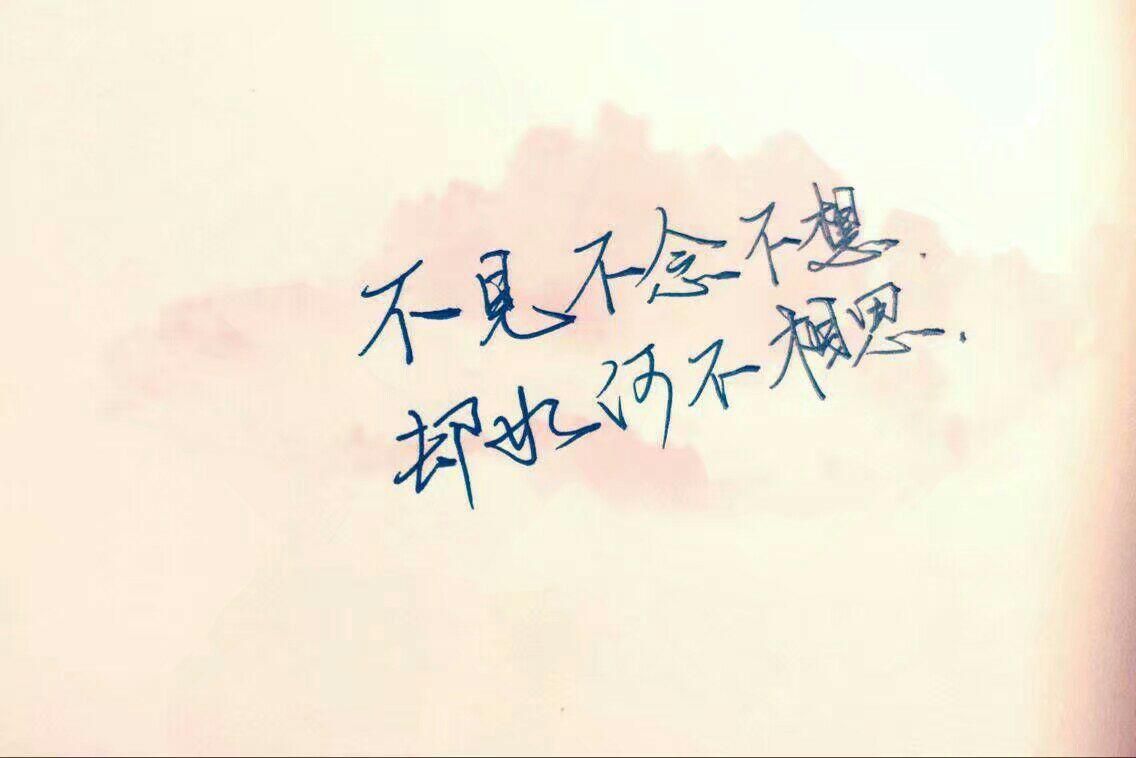 不見不念不想.
却如河不相思.